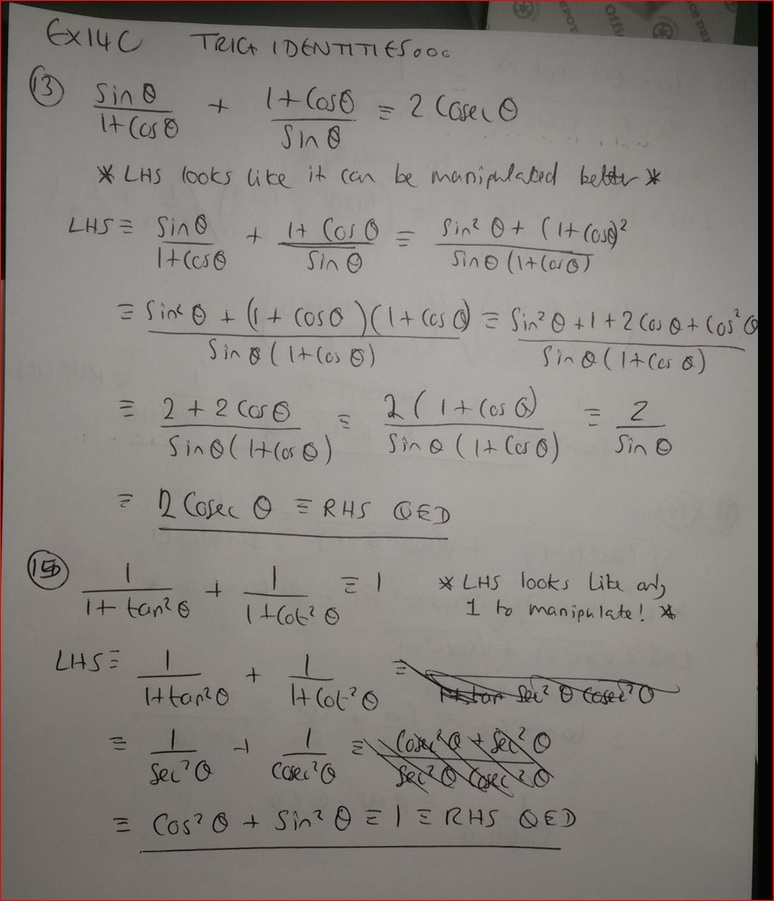 EX14C TRIG IDENTITIES...
(13) sinθ/(1+cosθ) + (1+cosθ)/sinθ ≡ 2cosecθ
* LHS looks like it can be manipulated better *
LHS ≡ sinθ/(1+cosθ) + (1+cosθ)/sinθ ≡ (sin²θ + (1+cosθ)²)/(sinθ(1+cosθ))
≡ (sin²θ + (1+cosθ)(1+cosθ))/(sinθ(1+cosθ)) ≡ (sin²θ+1+2cosθ+cos²θ)/(sinθ(1+cosθ))
≡ (2+2cosθ)/(sinθ(1+cosθ)) ≡ 2(1+cosθ)/(sinθ(1+cosθ)) ≡ 2/sinθ
≡ 2cosecθ ≡ RHS QED
(15) 1/(1+tan²θ) + 1/(1+cot²θ) ≡ 1 * LHS looks like only
1 to manipulate! *
LHS ≡ 1/(1+tan²θ) + 1/(1+cot²θ) ≡
≡ 1/sec²θ + 1/cosec²θ ≡ (cosec²θ + sec²θ)/(sec²θ cosec²θ)
≡ cos²θ + sin²θ ≡ 1 ≡ RHS QED